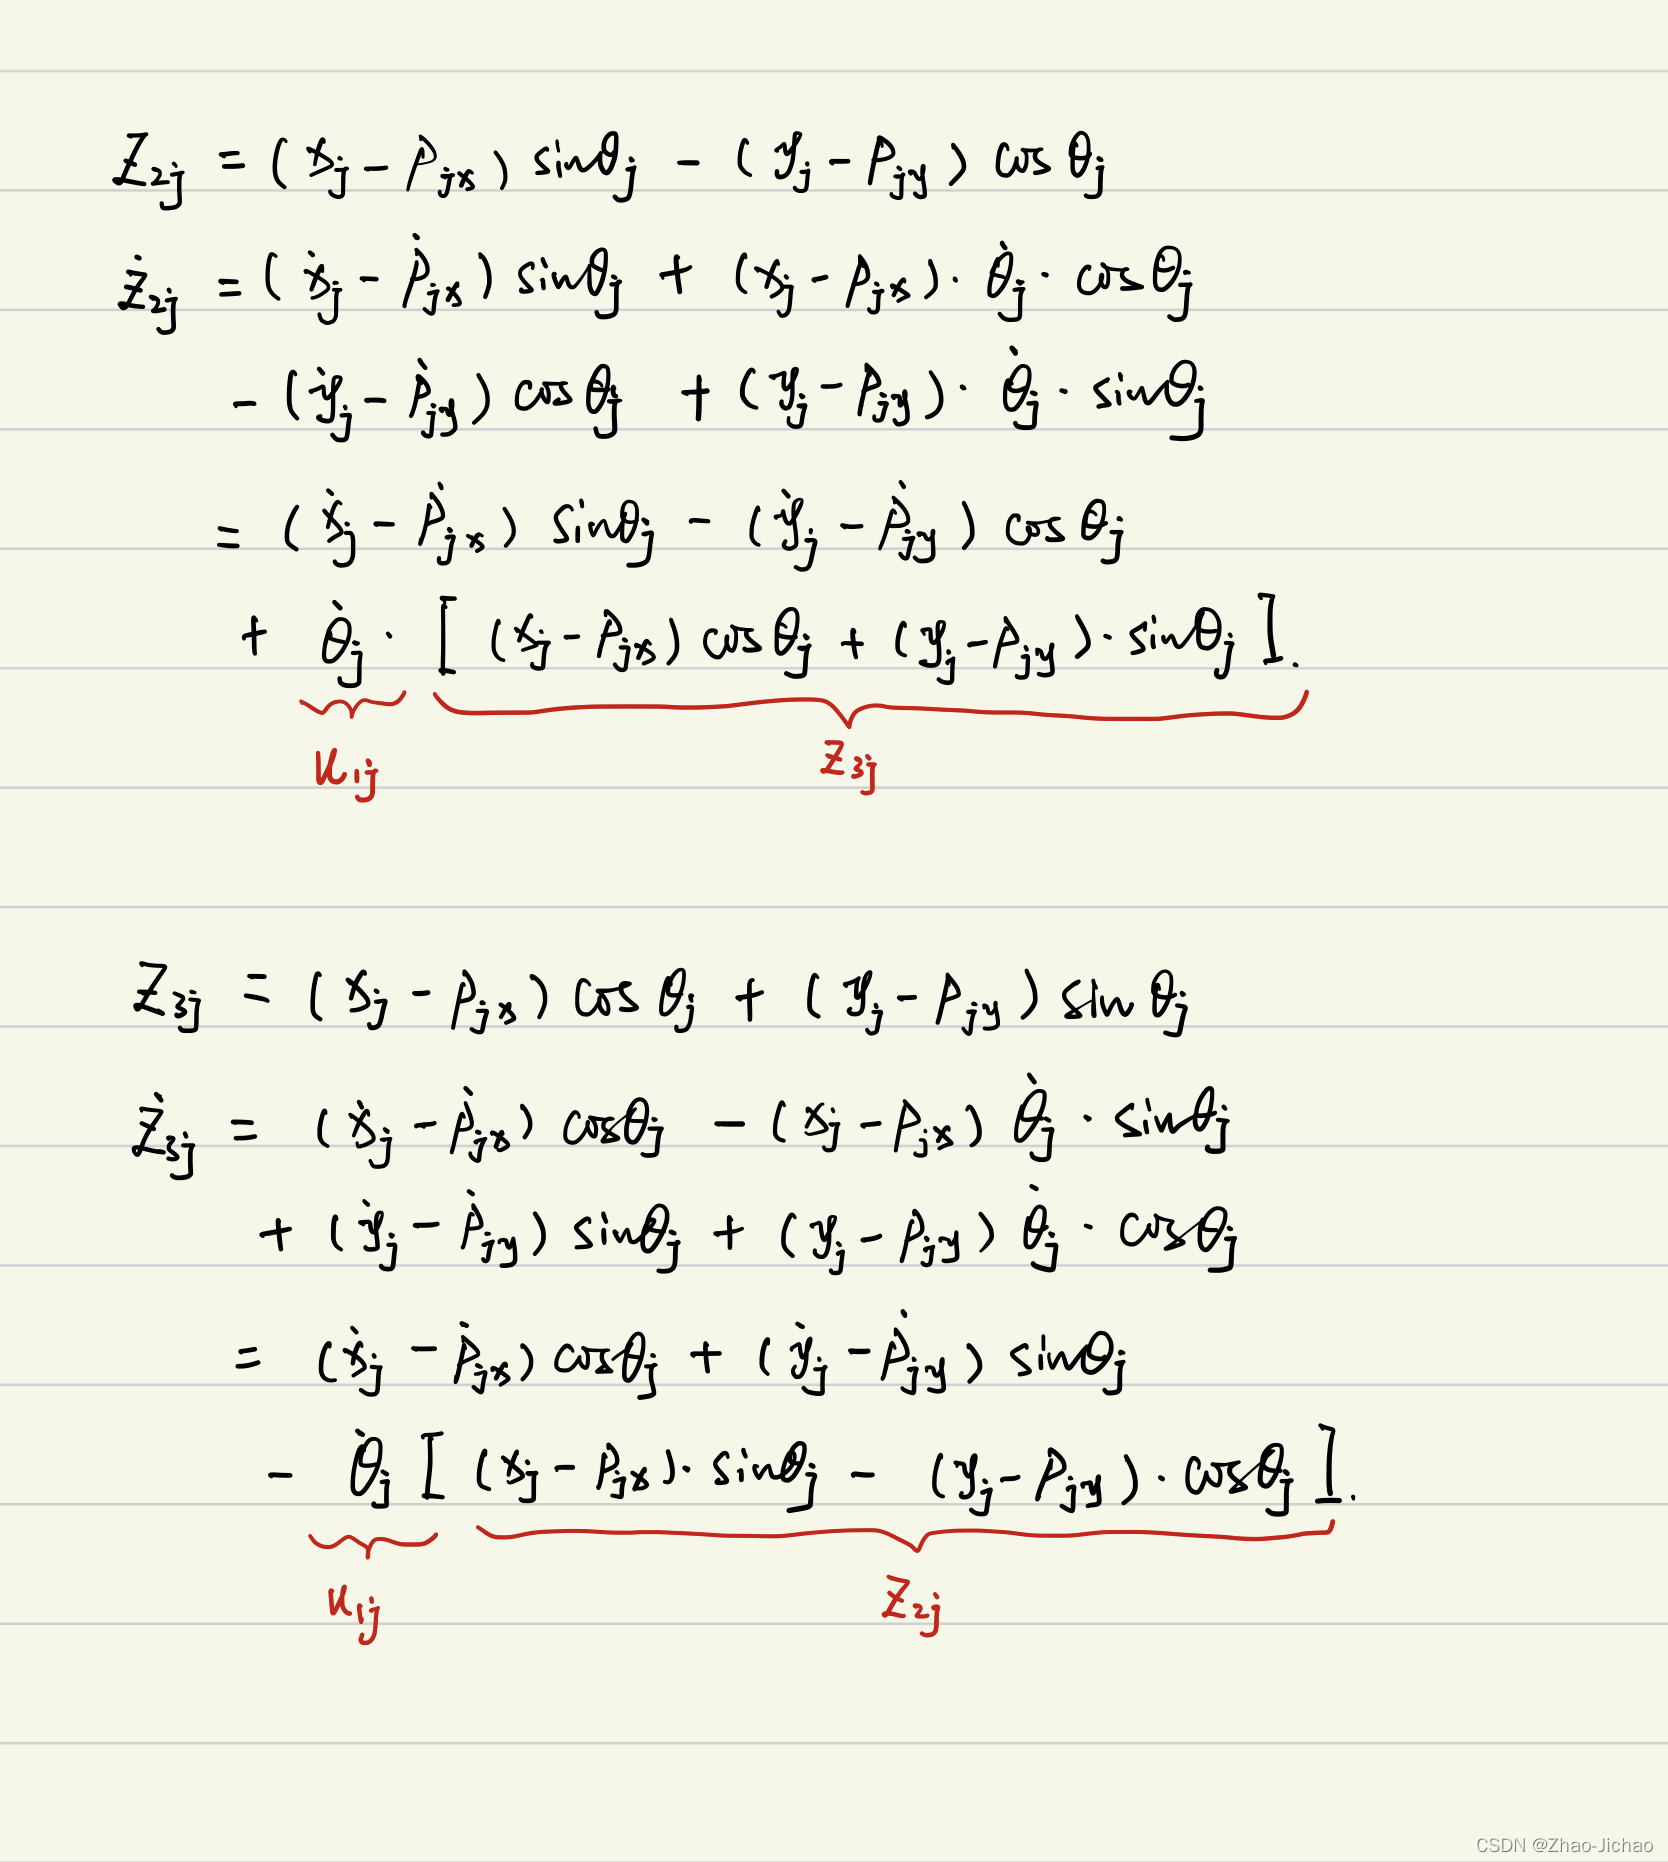 Z₂ⱼ = (xⱼ − Pⱼₓ) sinθⱼ − (yⱼ − Pⱼy) cos θⱼ
ż₂ⱼ = (ẋⱼ − Ṗⱼₓ) sinθⱼ + (xⱼ − Pⱼₓ) · θ̇ⱼ · cosθⱼ
− (ẏⱼ − Ṗⱼy) cosθⱼ + (yⱼ − Pⱼy) · θ̇ⱼ · sinθⱼ
= (ẋⱼ − Ṗⱼₓ) sinθⱼ − (ẏⱼ − Ṗⱼy) cos θⱼ
+ θ̇ⱼ · [ (xⱼ − Pⱼₓ) cosθⱼ + (yⱼ − Pⱼy) · sinθⱼ ].
u₁ⱼ z₃ⱼ
Z₃ⱼ = (xⱼ − Pⱼₓ) cos θⱼ + (yⱼ − Pⱼy) sin θⱼ
ż₃ⱼ = (ẋⱼ − Ṗⱼₓ) cosθⱼ − (xⱼ − Pⱼₓ) θ̇ⱼ · sinθⱼ
+ (ẏⱼ − Ṗⱼy) sinθⱼ + (yⱼ − Pⱼy) θ̇ⱼ · cosθⱼ
= (ẋⱼ − Ṗⱼₓ) cosθⱼ + (ẏⱼ − Ṗⱼy) sinθⱼ
− θ̇ⱼ [ (xⱼ − Pⱼₓ) · sinθⱼ − (yⱼ − Pⱼy) · cosθⱼ ].
u₁ⱼ z₂ⱼ
CSDN @Zhao-Jichao